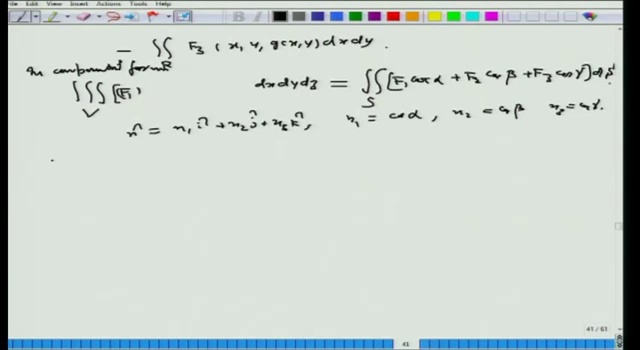 File Edit View Insert Actions Tools Help
− ∬ F₃ (x, y, g(x,y) dx dy.
R
In component form
∭ [F₁) dx dy dz = ∬ [F₁ cos α + F₂ cos β + F₃ cos γ] ds
V S
n̂ = n₁ î + n₂ ĵ + n₃ k̂, n₁ = cos α, n₂ = cos β n₃ = cos γ.
41 / 61
41